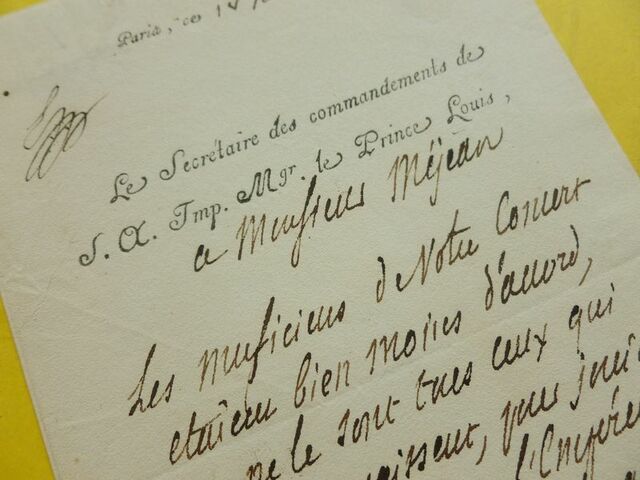 Paris, ce 14
Le Secrétaire des commandements de
S. A. Imp. Mgr. le Prince Louis,
a Monsieur Méjean
Les musiciens de Notre Concert
etaient bien moins d'accord,
ne le sont tous ceux qui
l'Empére